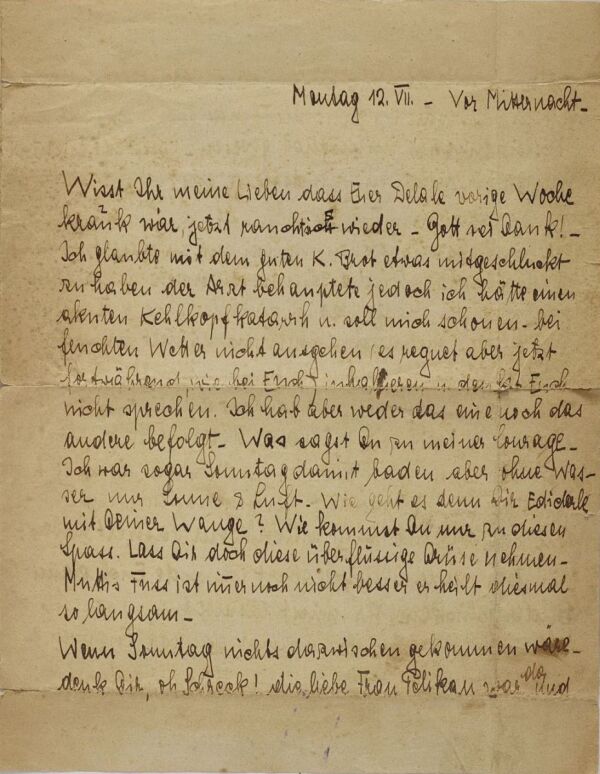 Montag 12. VII. – Vor Mitternacht –
Wisst Ihr meine Lieben dass Euer vorige Woche
krank war, jetzt wieder – Gott sei Dank! –
Ich glaubte mit dem guten K. Brot etwas mitgeschluckt
zu haben der Arzt behauptete jedoch ich hätte einen
akuten Kehlkopfkatarrh u. soll mich schonen – bei
feuchten Wetter nicht ausgehen (es regnet aber jetzt
fortwährend, wie bei Euch) inhalieren u.
nicht sprechen. Ich hab aber weder das eine noch das
andere befolgt – Was sagst Du zu meiner Courage –
Ich war sogar Sonntag damit baden aber ohne Was-
ser nur Sonne & Luft – Wie geht es denn Dir Ediderle
mit Deiner Wange? Wie kommst Du nur zu diesen
Spass. Lass Dir doch diese überflüssige Drüse nehmen –
Muttis Fuss ist immer noch nicht besser er heilt diesmal
so langsam –
Wenn Sonntag nichts dazwischen gekommen wäre –
denk Dir, oh Schreck! die liebe Frau Pelikan war da und